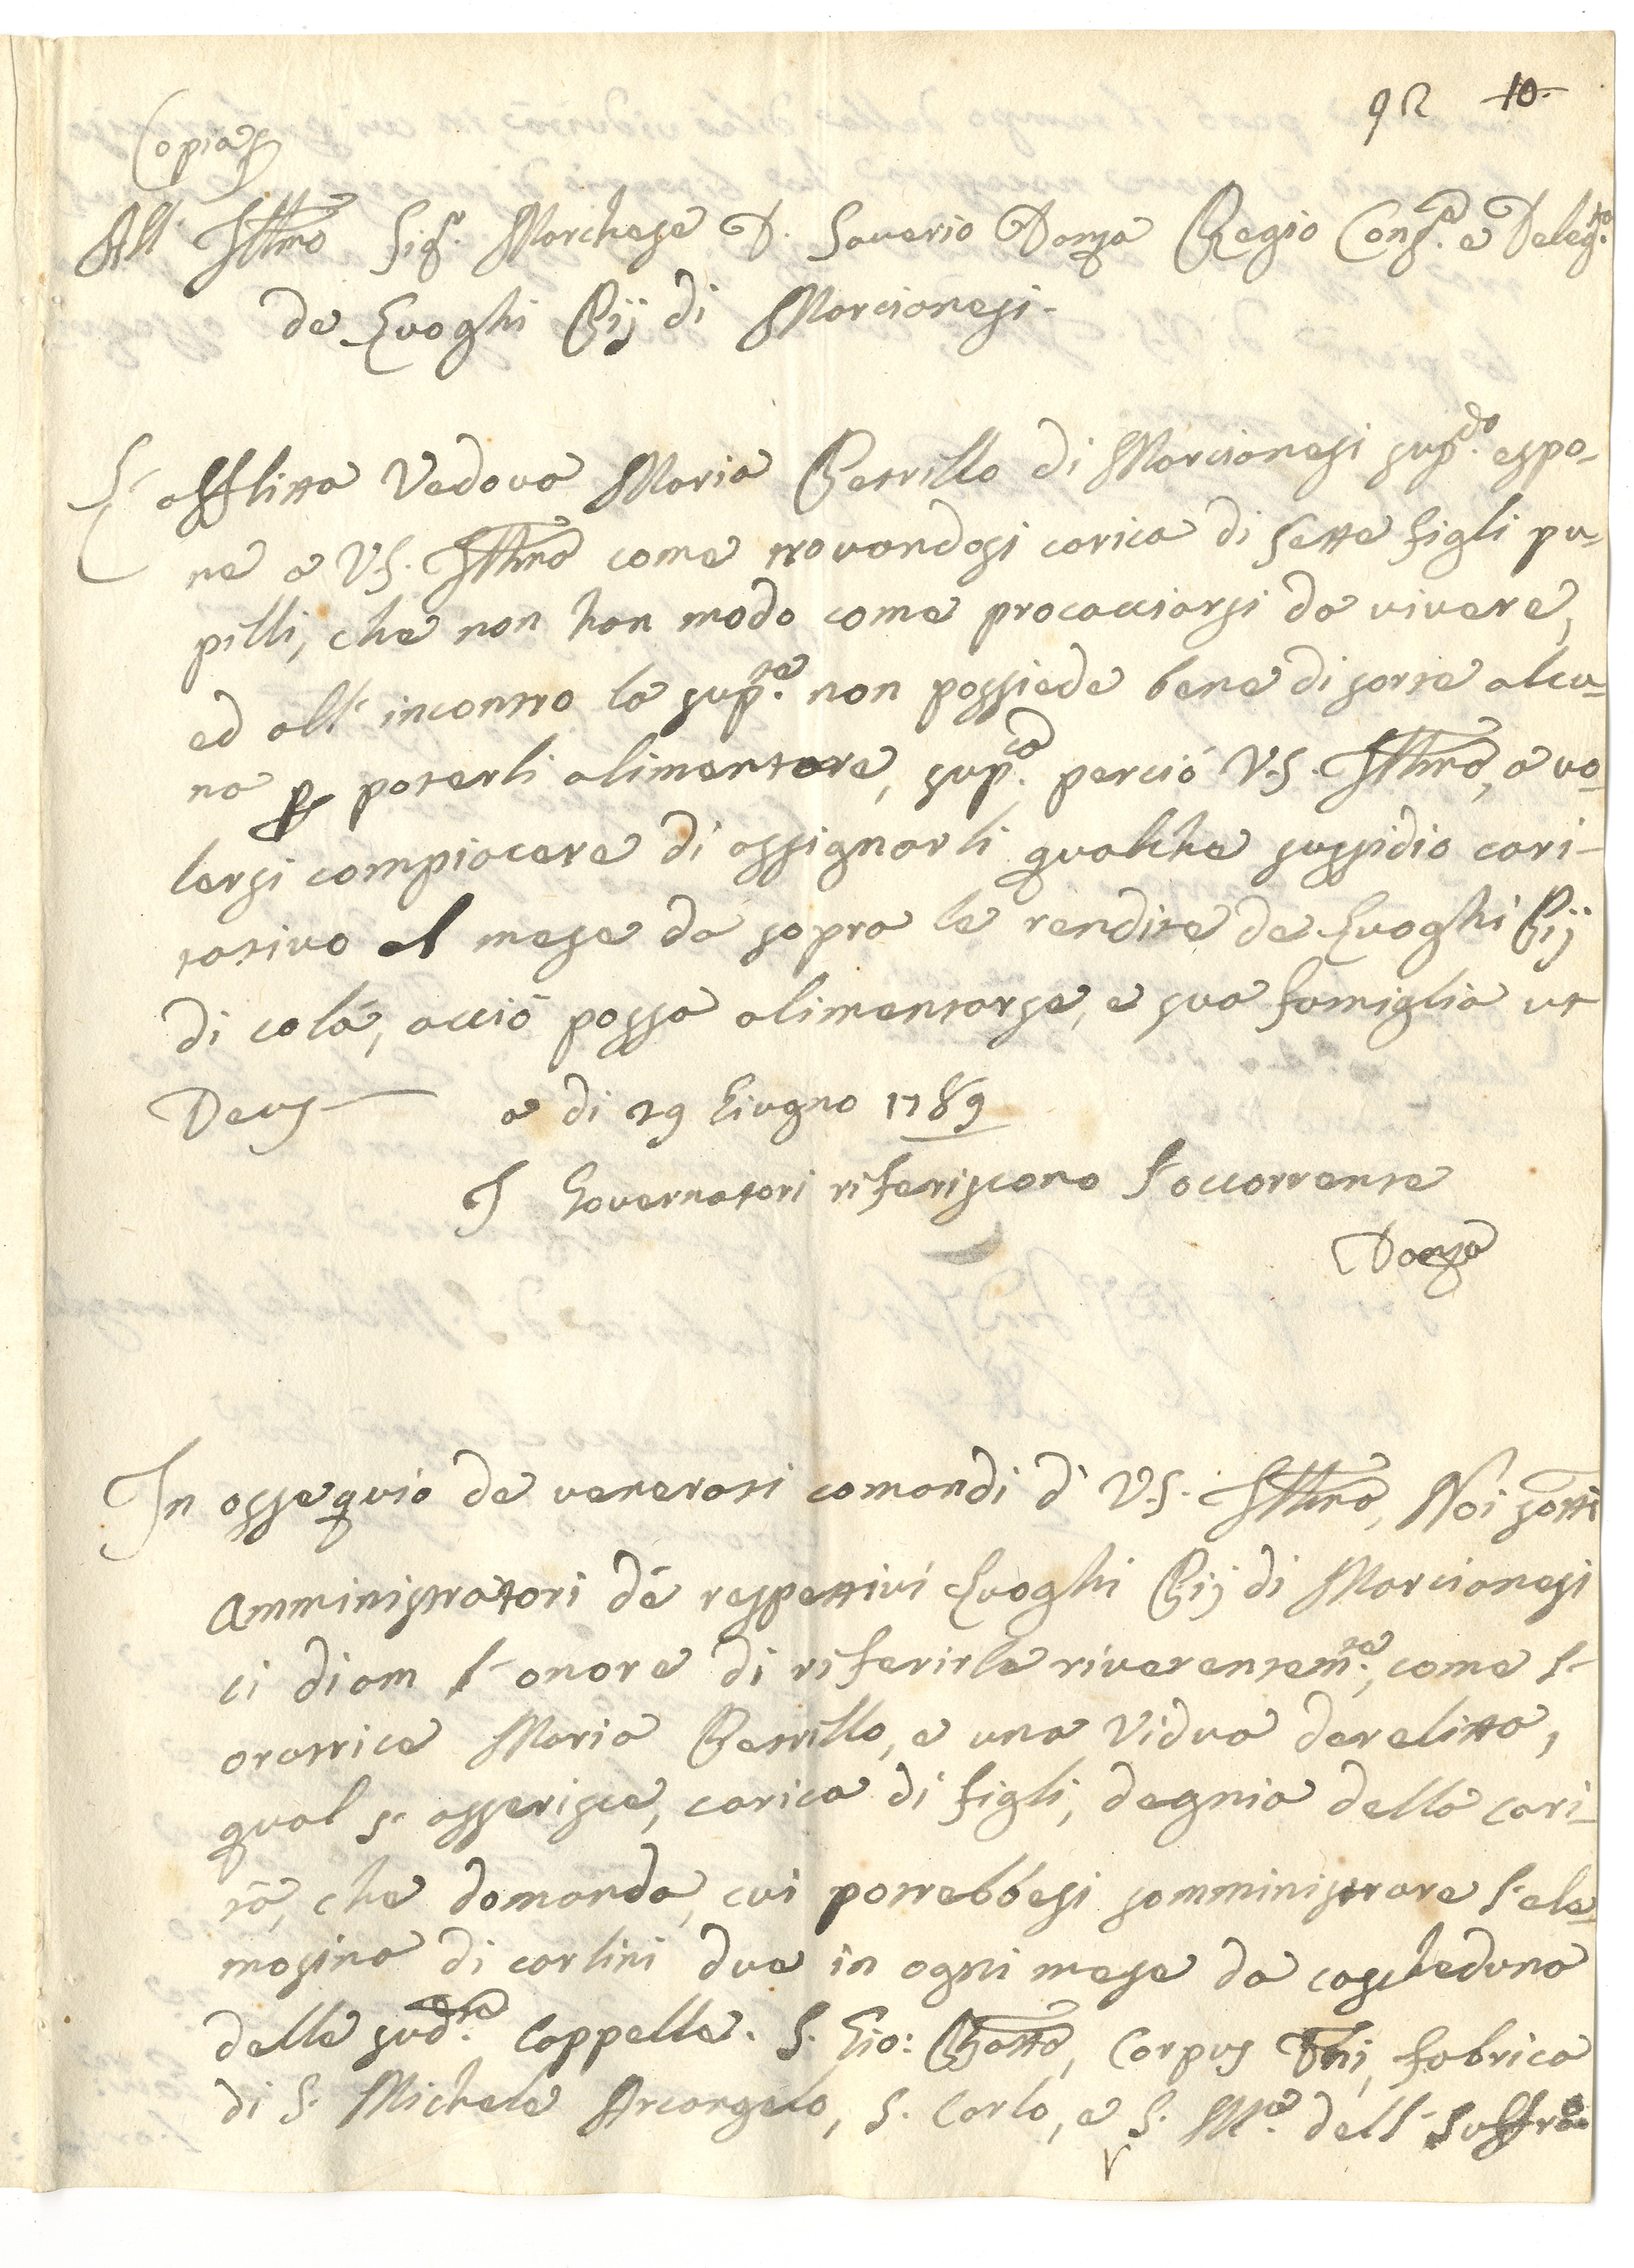 92 10.
Copia
All' Ill̃mo Sig.r Marchese D. Saverio Danza Regio Cons.e e Deleg.to
de Luoghi Pij di Marcianesi.
L' afflitta Vedova Maria Petrillo di Marcianesi sup.do espo-
ne a V.S. Ill̃ma come trovandosi carica di sette figli pu-
pilli, che non han modo come procacciarsi da vivere,
ed all' incontro la sup.te non possiede bene di sorte alcu-
na p poterli alimentare, sup.ca perciò V.S. Ill̃ma, a vo-
lersi compiacere di assignarli qualche sussidio cari-
tativo al mese da sopra le rendite de Luoghi Pij
di colà, acciò possa alimentarse, e sua famiglia ut
Deus a di 29 Giugno 1789
I Governatori riferiscono l'occorrente
Danza
In ossequio de venerati comandi di V.S. Ill̃ma, Noi sotti
Amministratori dè respettivi Luoghi Pij di Marcianesi
ci diam l' onore di riferirle riverentem.te, come l'
oratrice Maria Petrillo, e una Vidua derelitta,
qual s' asserisce, carica di figli, degnia della cari-
tà, che domanda, cui potrebbesi somministrare l'ele-
mosina di carlini due in ogni mese da cascheduna
delle sud.te Cappelle. S. Gio: Batta, Corpus Xhi, fabrica
di S. Michele Arcangelo, S. Carlo, e S. M.a dell' Suffra: